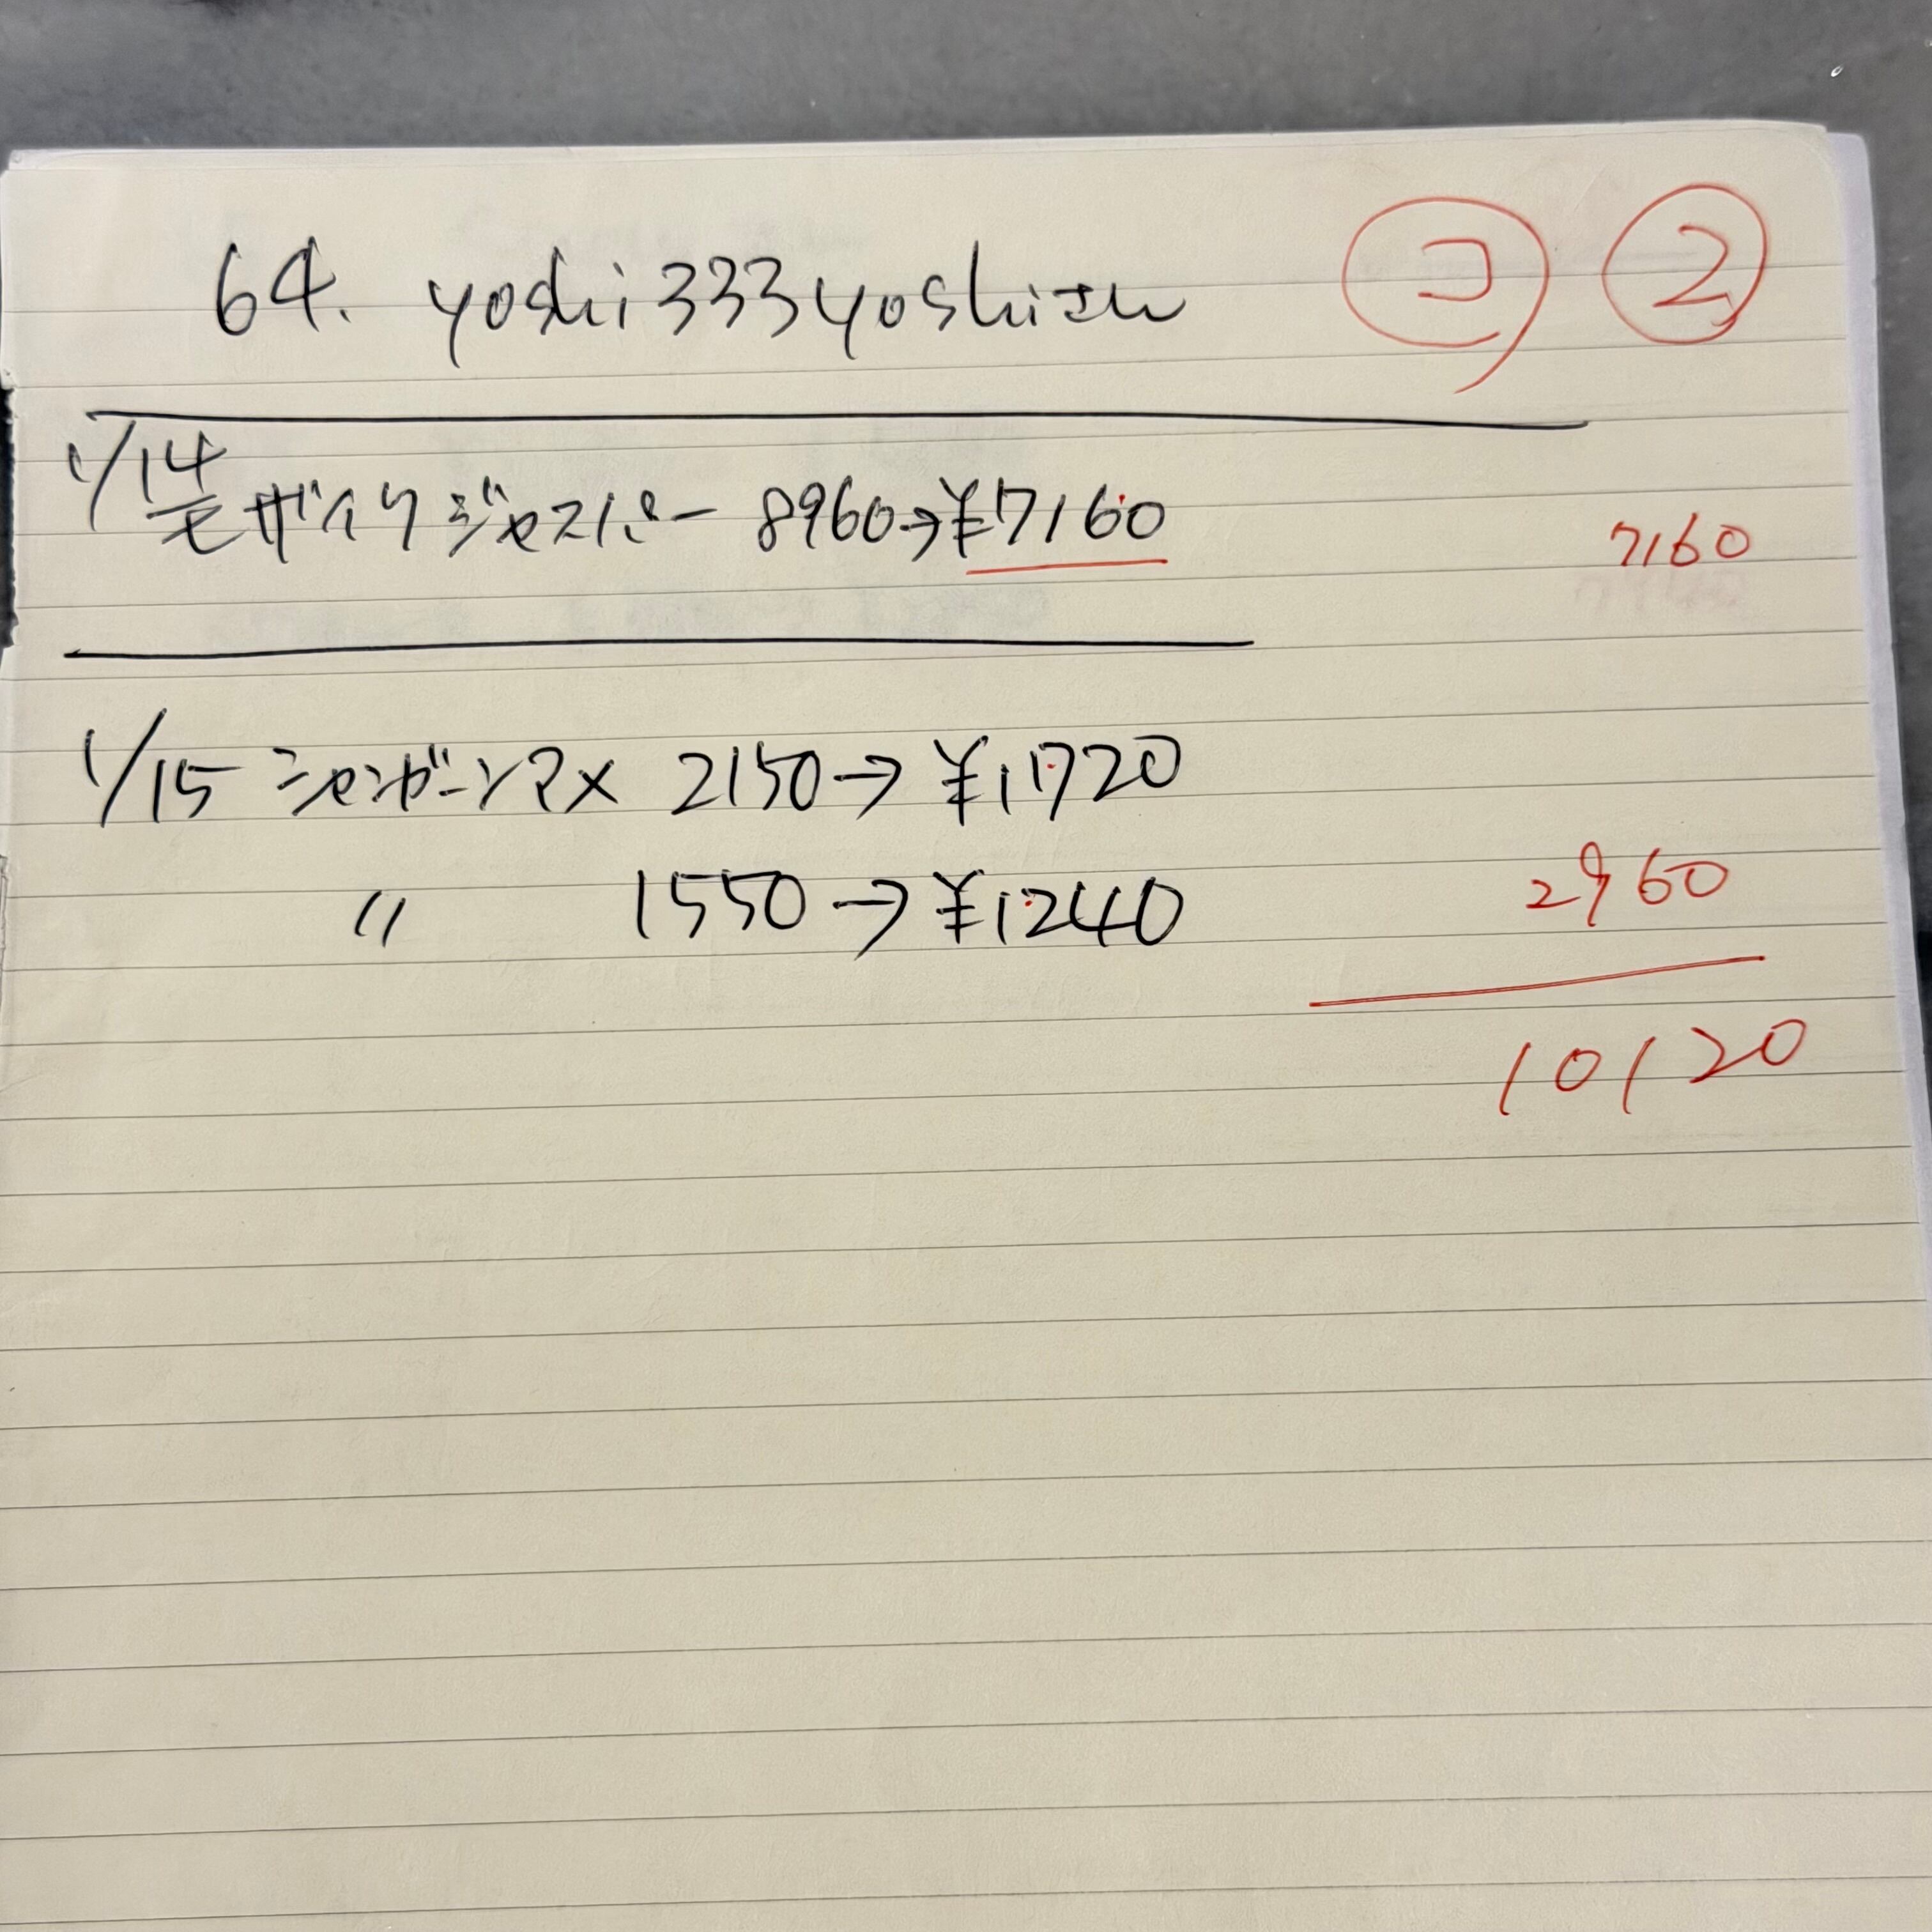 64. yoshi333yoshiさん コ 2
1/14
モザイクジャスパー 8960→¥7160 7160
1/15 シャンガーンマメ 2150→¥1720
〃 1550→¥1240 2960
10120